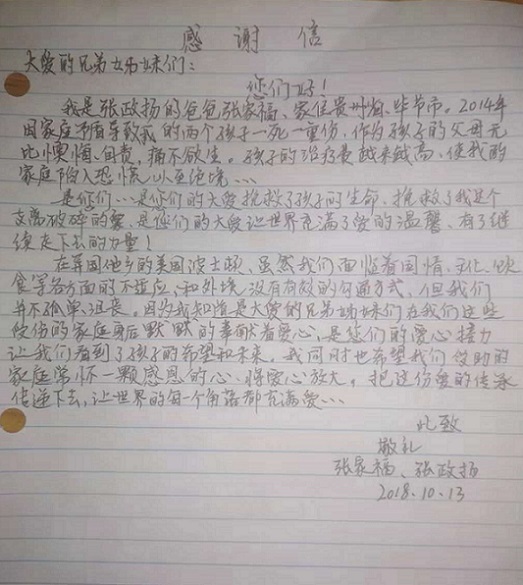 感谢信
大爱的兄弟姊妹们：
您们好！
我是张政扬的爸爸张家福、家住贵州省、毕节市。2014年
因家庭矛盾导致我的两个孩子一死一重伤，作为孩子的父母无
比懊悔、自责，痛不欲生。孩子的治疗费越来越高、使我的
家庭陷入恐慌以至绝境…
是你们…是你们的大爱挽救了孩子的生命、挽救了我这个
支离破碎的家、是您们的大爱让世界充满了爱的温馨、有了继
续走下去的力量！
在异国他乡的美国波士顿、虽然我们面临着国情、文化、饮
食等各方面的不适应、和外境没有有效的沟通方式，但我们
并不孤单、沮丧。因为我知道是大爱的兄弟姊妹们在我们这些
烧伤的家庭身后默默的奉献着爱心，是您们的爱心接力
让我们看到了孩子的希望和未来。我同时也希望我们受助的
家庭常怀一颗感恩的心、将爱心放大。把这份爱的传承
传递下去，让世界的每一个角落都充满爱…
此致
敬礼
张家福、张政扬
2018.10.13